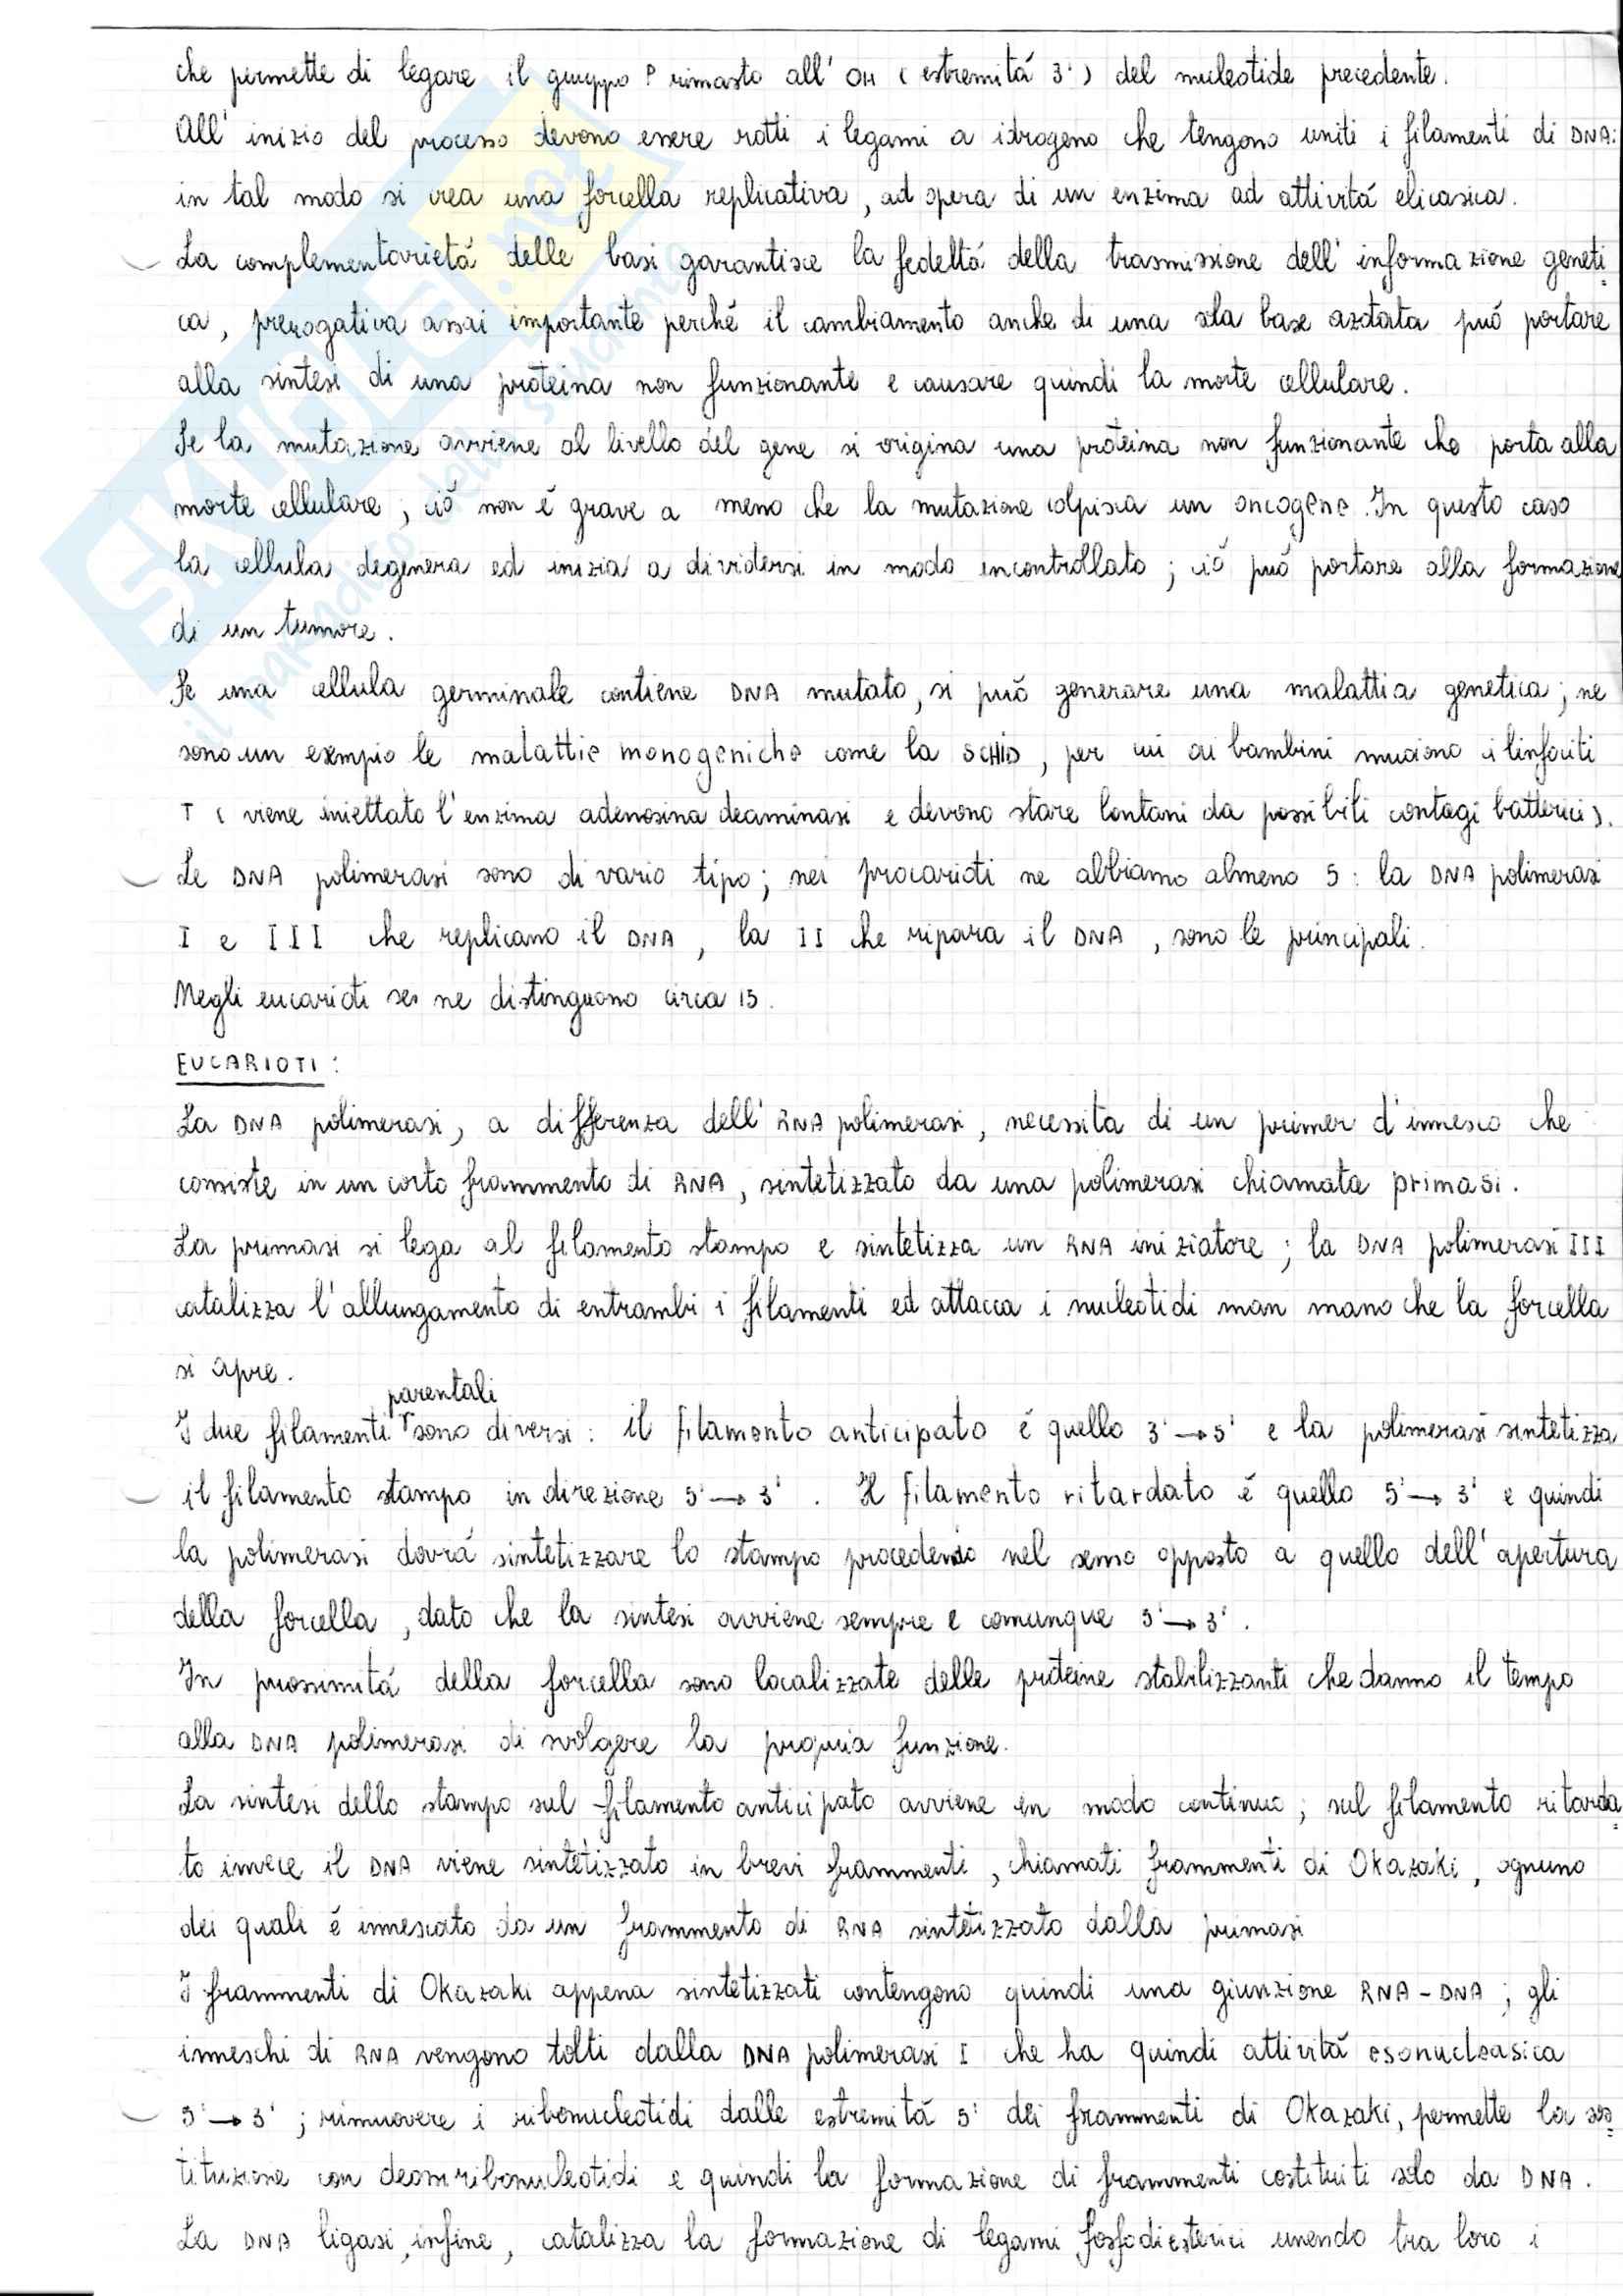 che permette di legare il gruppo P rimasto all' OH ( estremitá 3' ) del nucleotide precedente.
All' inizio del processo devono essere rotti i legami a idrogeno che tengono uniti i filamenti di DNA:
in tal modo si crea una forcella replicativa, ad opera di un enzima ad attivitá elicasica.
La complementarietá delle basi garantisce la fedeltá della trasmissione dell' informazione geneti
ca, prerogativa assai importante perché il cambiamento anche di una sola base azotata puó portare
alla sintesi di una proteina non funzionante e causare quindi la morte cellulare.
Se la mutazione avviene al livello del gene si origina una proteina non funzionante che porta alla
morte cellulare; ció non é grave a meno che la mutazione colpisca un oncogene. In questo caso
la cellula degenera ed inizia a dividersi in modo incontrollato; ció puó portare alla formazione
di un tumore.
Se una cellula germinale contiene DNA mutato, si puó generare una malattia genetica; ne
sono un esempio le malattie monogeniche come la SCHID, per cui ai bambini muoiono i linfociti
T ( viene iniettato l'enzima adenosina deaminasi e devono stare lontani da possibili contagi batterici ).
Le DNA polimerasi sono di vario tipo; nei procarioti ne abbiamo almeno 5: la DNA polimerasi
I e III che replicano il DNA, la II che ripara il DNA, sono le principali.
Negli eucarioti se ne distinguono circa 15.
EUCARIOTI:
La DNA polimerasi, a differenza dell' RNA polimerasi, necessita di un primer d'innesco che
consiste in un corto frammento di RNA, sintetizzato da una polimerasi chiamata primasi.
La primasi si lega al filamento stampo e sintetizza un RNA iniziatore; la DNA polimerasi III
catalizza l'allungamento di entrambi i filamenti ed attacca i nucleotidi man mano che la forcella
si apre.
parentali
I due filamenti sono diversi: il filamento anticipato é quello 3' → 5' e la polimerasi sintetizza
il filamento stampo in direzione 5' → 3'. Il filamento ritardato é quello 5' → 3' e quindi
la polimerasi dovrá sintetizzare lo stampo procedendo nel senso opposto a quello dell' apertura
della forcella, dato che la sintesi avviene sempre e comunque 5' → 3'.
In prossimitá della forcella sono localizzate delle proteine stabilizzanti che danno il tempo
alla DNA polimerasi di svolgere la propria funzione.
La sintesi dello stampo sul filamento anticipato avviene in modo continuo; sul filamento ritarda
to invece il DNA viene sintetizzato in brevi frammenti, chiamati frammenti di Okazaki, ognuno
dei quali é innescato da un frammento di RNA sintetizzato dalla primasi
I frammenti di Okazaki appena sintetizzati contengono quindi una giunzione RNA-DNA; gli
inneschi di RNA vengono tolti dalla DNA polimerasi I che ha quindi attivitá esonucleasica
5' → 3'; rimuovere i ribonucleotidi dalle estremitá 5' dei frammenti di Okazaki, permette la sos
tituzione con deossiribonucleotidi e quindi la formazione di frammenti costituiti solo da DNA.
La DNA ligasi, infine, catalizza la formazione di legami fosfodiesterici unendo tra loro i
SKUOLA.net
il paradiso dello studente